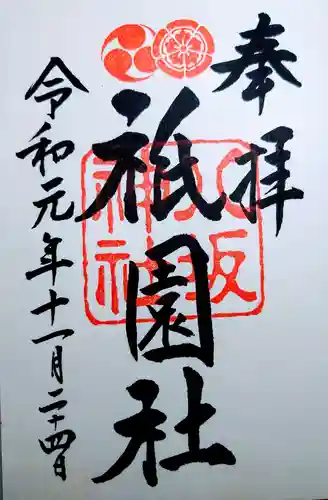 奉拝
八坂神社
祇園社
令和元年十一月二十四日